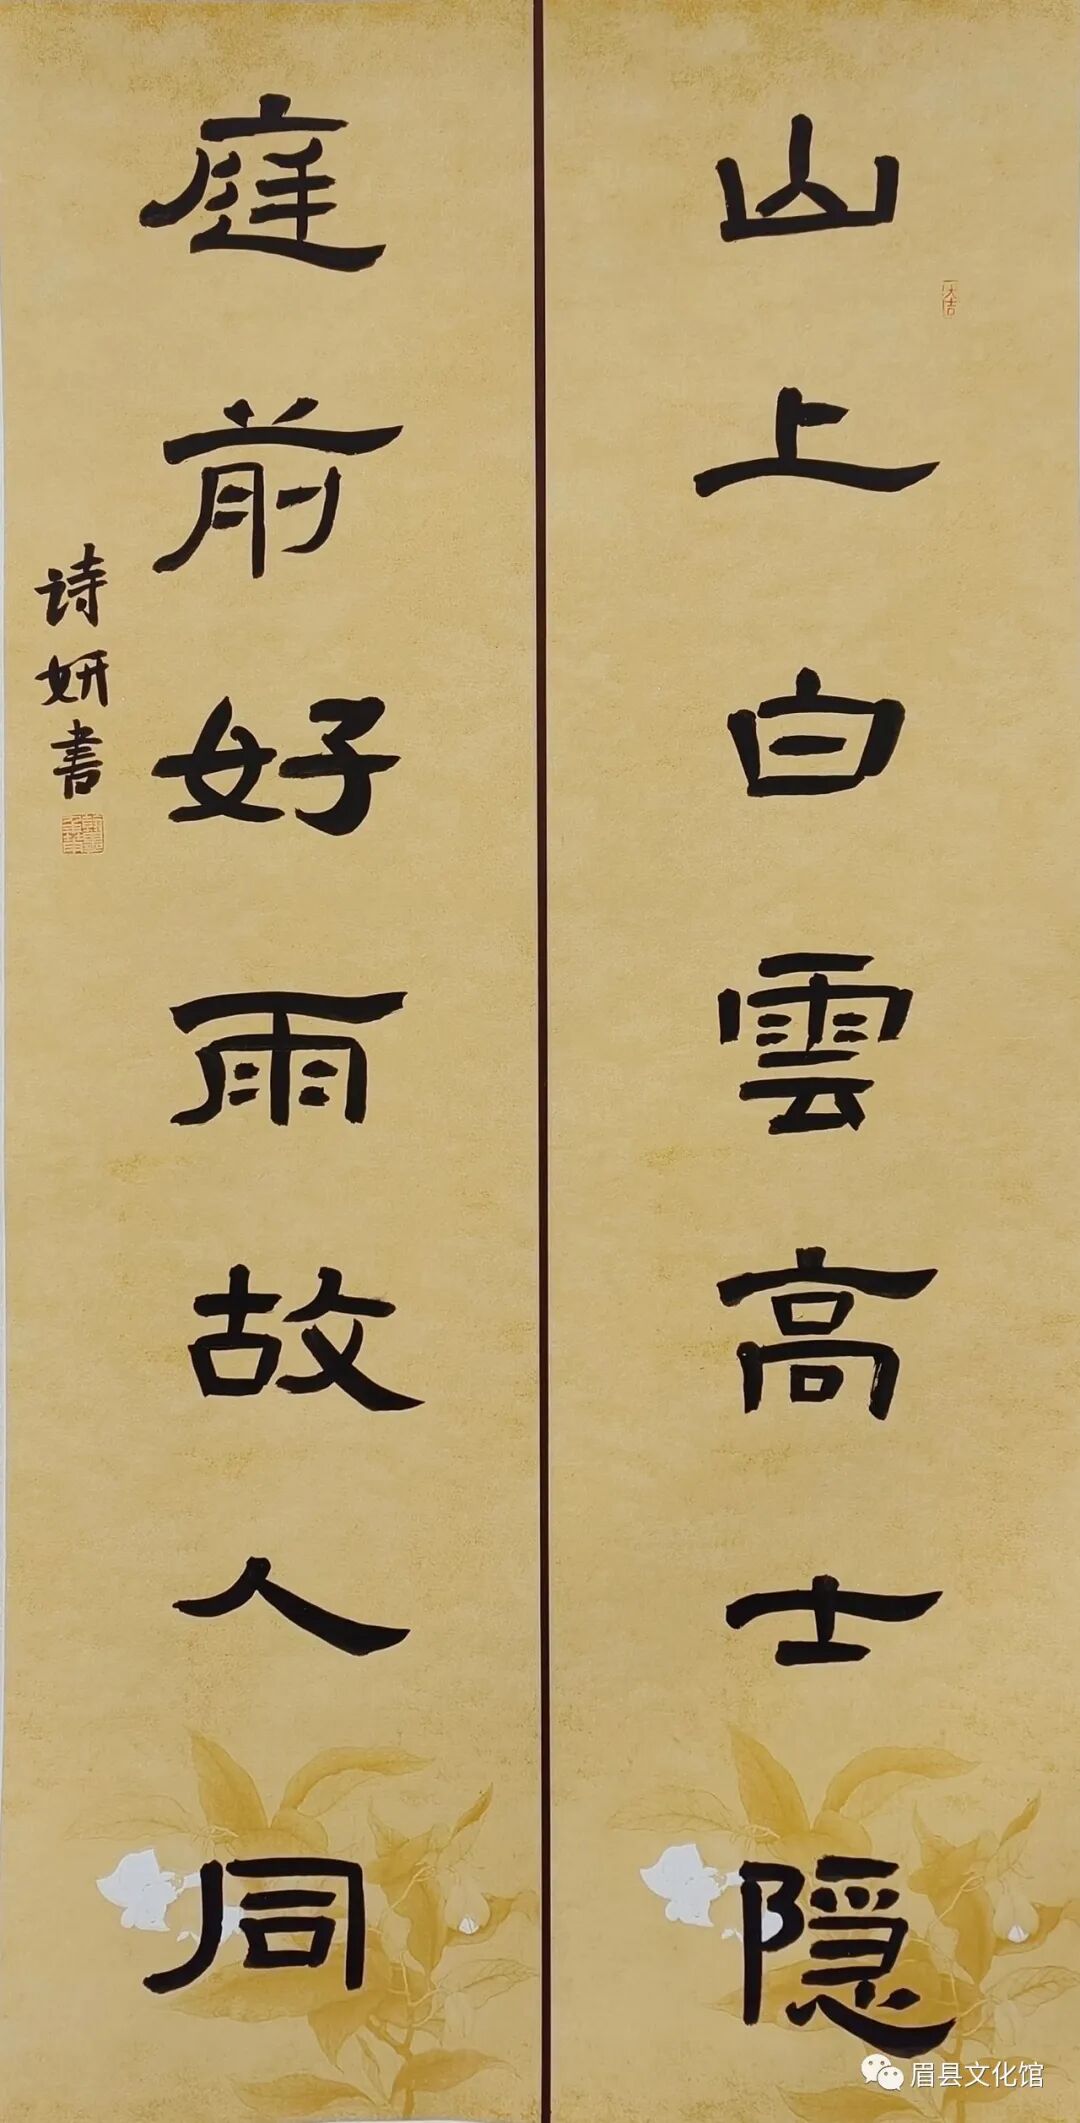 山上白雲高士隐
庭前好雨故人同
诗妍書
大吉
眉县文化馆